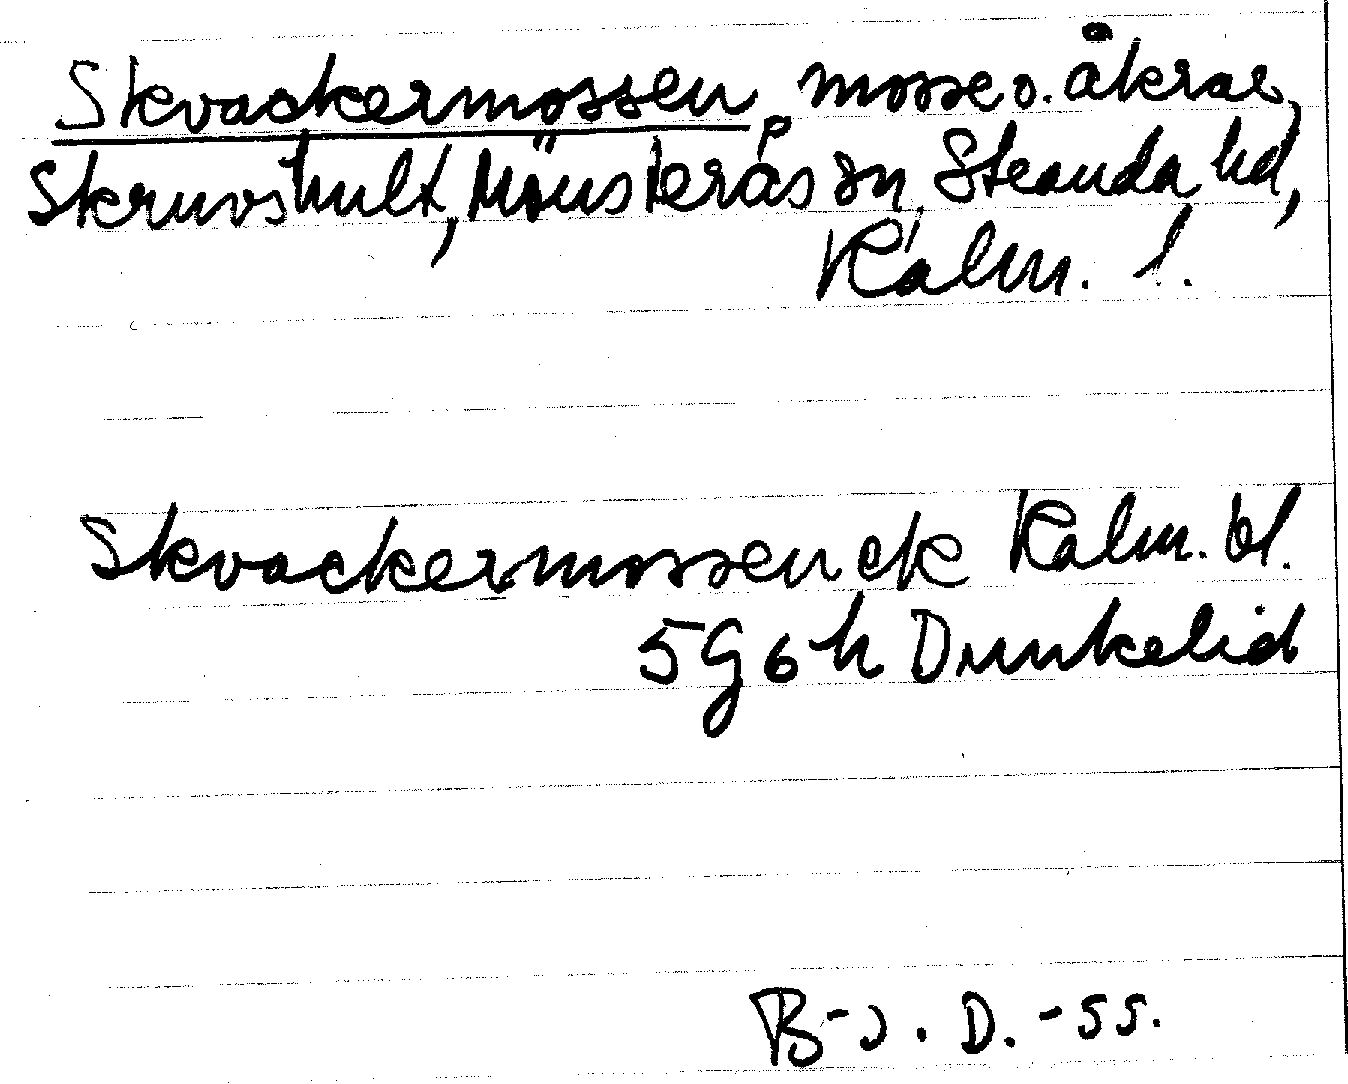 Skvackermossen, mosse o. åkrar,
Skruvshult, Mönsterås sn, Stranda hd,
Kalm. l.
Skvackermossen ek Kalm. bl.
5G6h Dunkelid
B-J. D. -55.